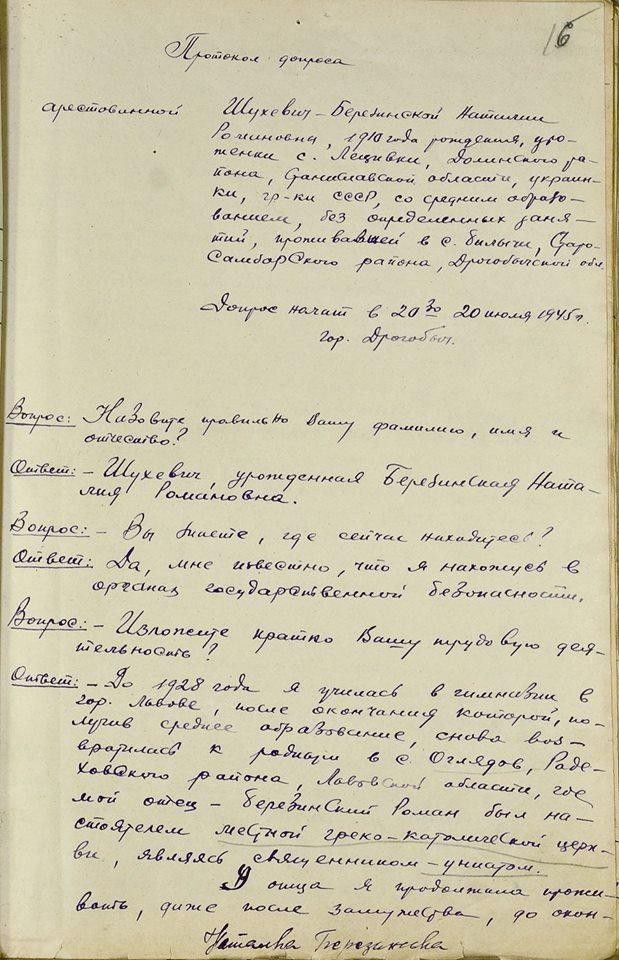 16
Протокол допроса
арестованной Шухевич-Березинской Наталии
Романовны, 1910 года рождения, уро-
женки с. Лецивки, Долинского ра-
йона, Станиславской области, украин-
ки, гр-ки СССР, со средним образо-
ванием, без определенных заня-
тий, проживавшей в с. Биличи, Старо-
Самборского района, Дрогобычской обл.
Допрос начат в 20 30 20 июля 1945 г.
гор. Дрогобыч.
Вопрос: Назовите правильно Вашу фамилию, имя и
отчество?
Ответ: – Шухевич, урожденная Березинская Ната-
лия Романовна.
Вопрос: – Вы знаете, где сейчас находитесь?
Ответ: Да, мне известно, что я нахожусь в
органах государственной безопасности.
Вопрос: – Изложите кратко Вашу трудовую дея-
тельность?
Ответ: – До 1928 года я училась в гимназии в
гор. Львове, после окончания которой, по-
лучив среднее образование, снова воз-
вратилась к родным в с. Оглядов, Раде-
ховского района, Львовской области, где
мой отец – Березинский Роман был на-
стоятелем местной греко-католической церк-
ви, являясь священником-униатом.
У отца я продолжала прожи-
вать, даже после замужества, до окон-
Наталка Березинська